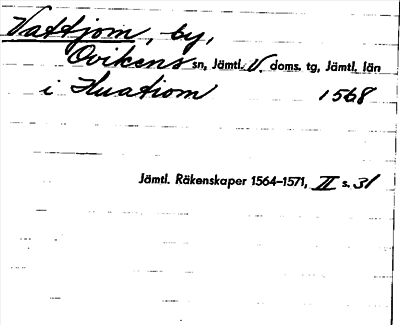 Vattjom, by,
Ovikens sn, Jämtl. V. doms. tg, Jämtl. län
i Huatiom 1568
Jämtl. Räkenskaper 1564–1571, II s. 31